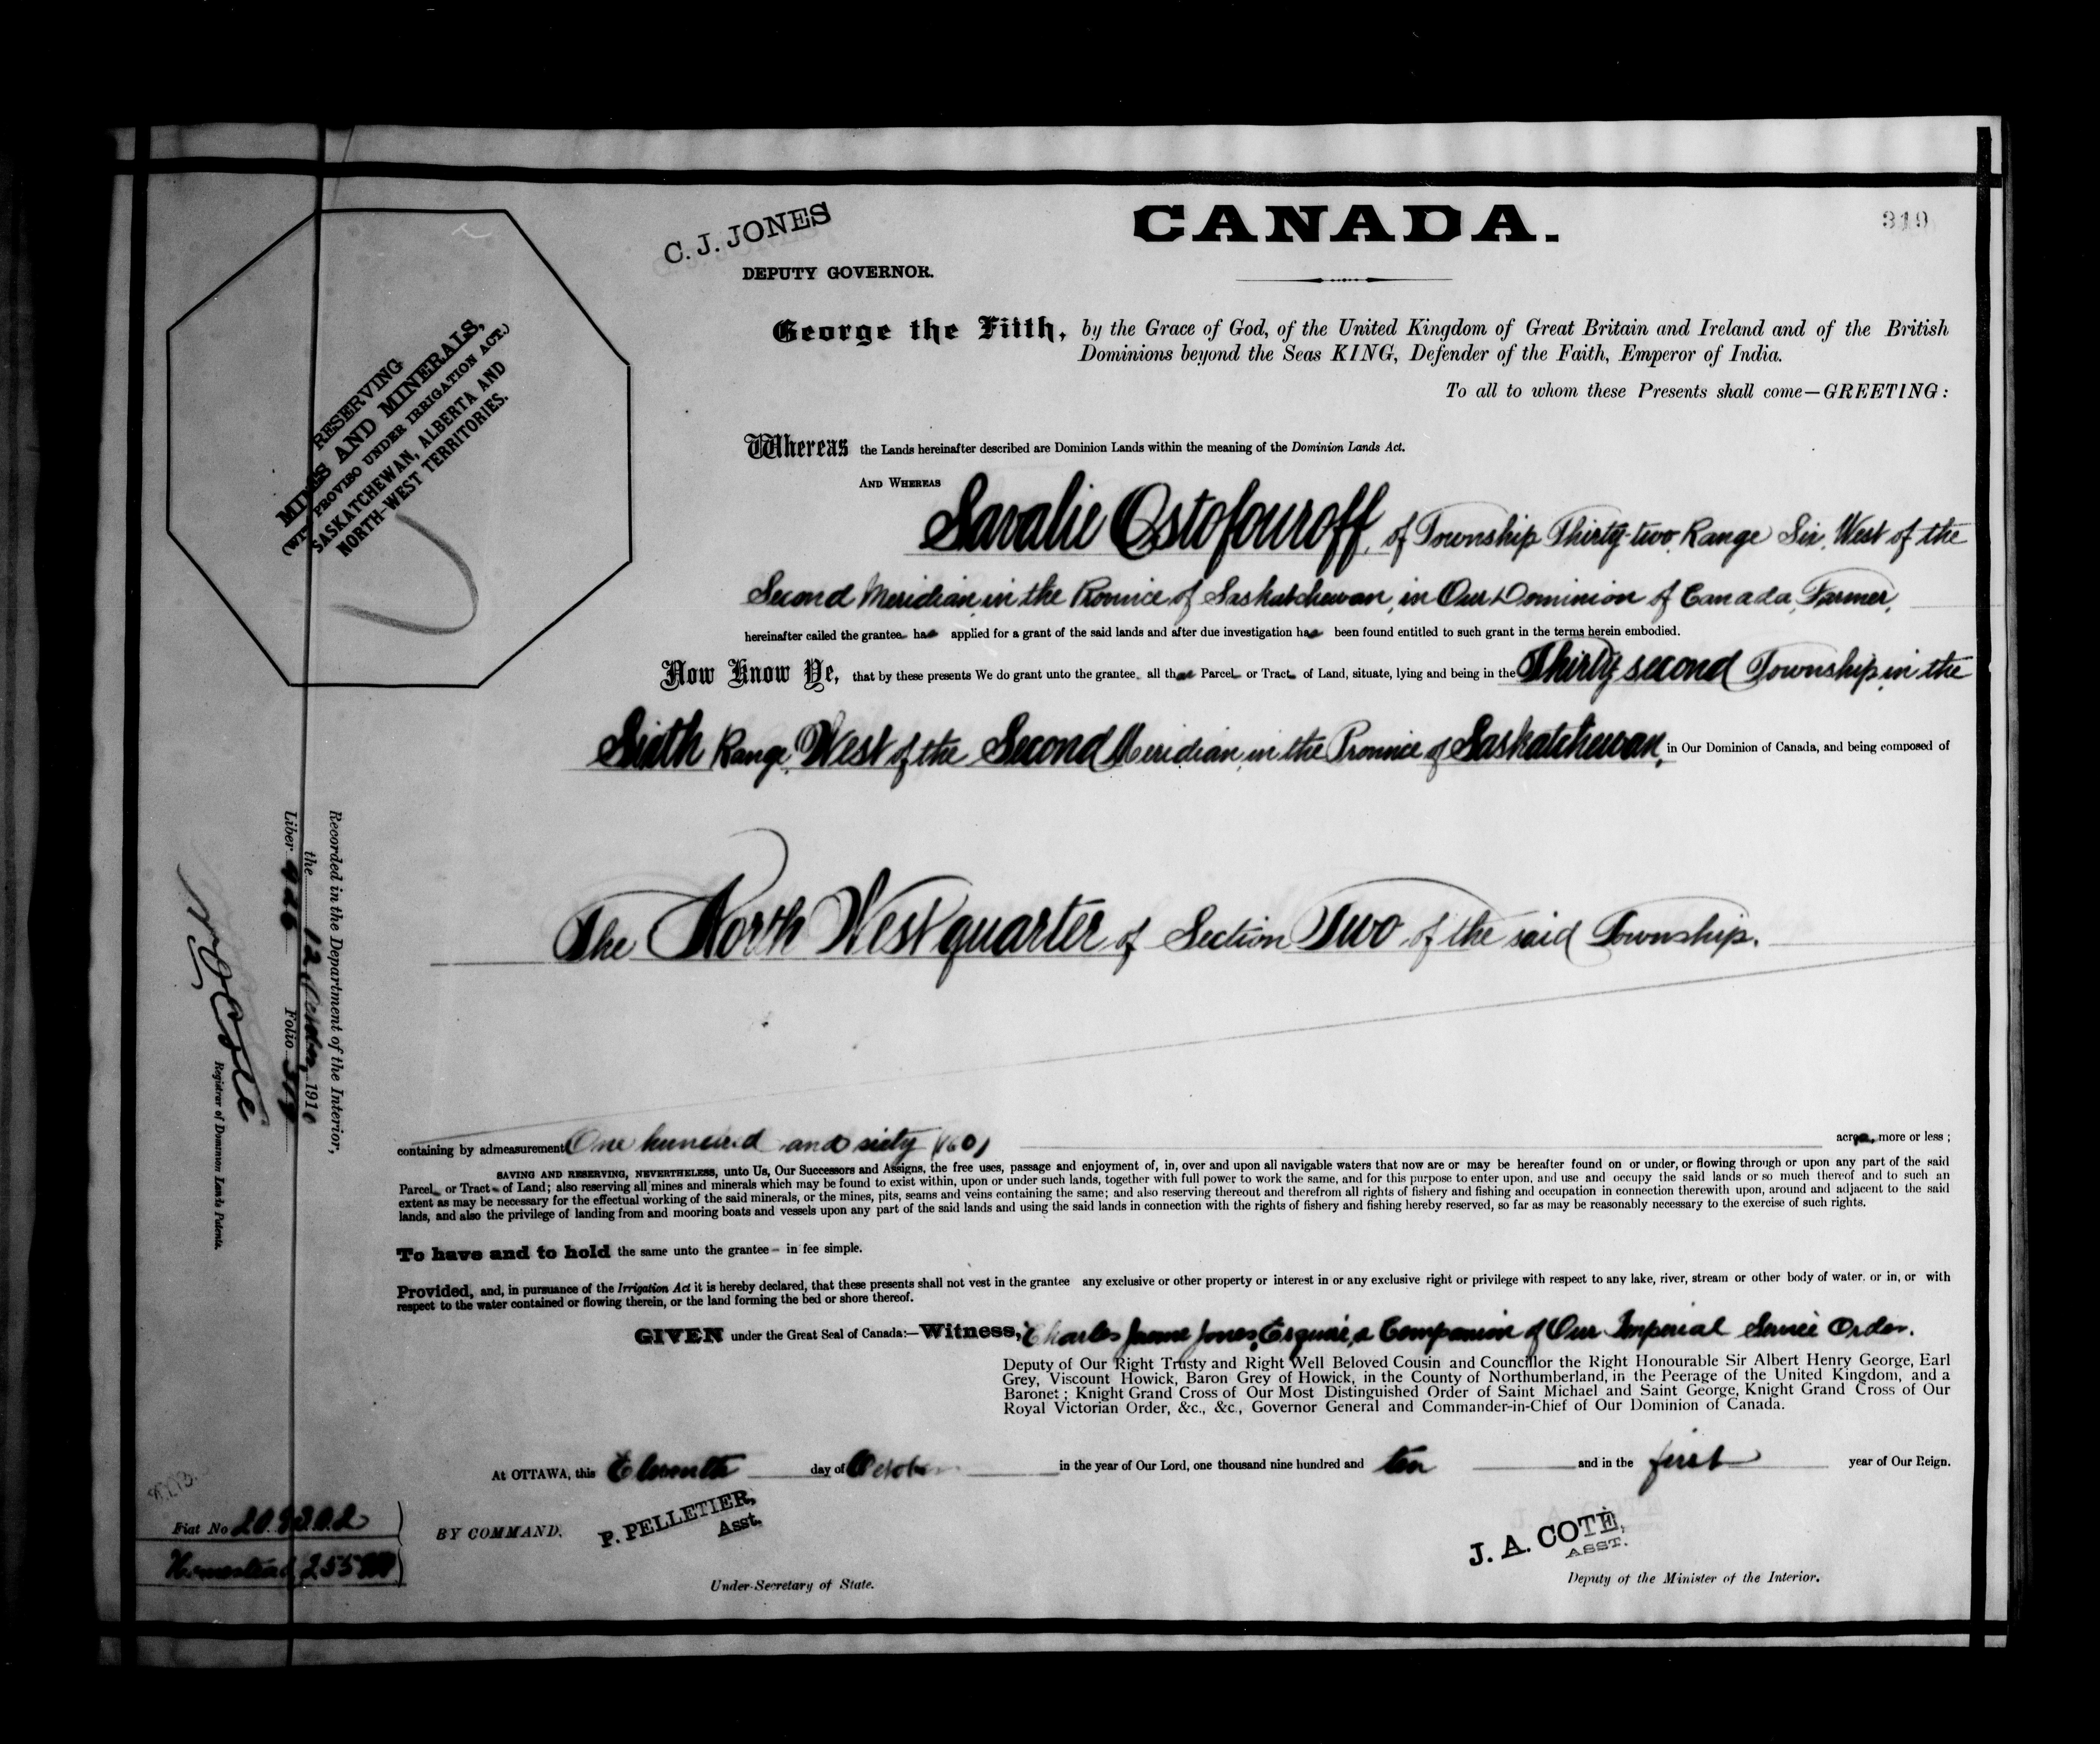 C. J. JONES
DEPUTY GOVERNOR.
CANADA.
319
George the Fifth, by the Grace of God, of the United Kingdom of Great Britain and Ireland and of the British
Dominions beyond the Seas KING, Defender of the Faith, Emperor of India.
To all to whom these Presents shall come—GREETING:
RESERVING
MINES AND MINERALS,
(WITH PROVISO UNDER IRRIGATION ACT.)
SASKATCHEWAN, ALBERTA AND
NORTH-WEST TERRITORIES.
Whereas the Lands hereinafter described are Dominion Lands within the meaning of the Dominion Lands Act.
AND WHEREAS
Savalie Ostofouroff, of Township Thirty-two, Range Six, West of the
Second Meridian, in the Province of Saskatchewan, in Our Dominion of Canada, Farmer,
hereinafter called the grantee has applied for a grant of the said lands and after due investigation has been found entitled to such grant in the terms herein embodied.
Now Know Ye, that by these presents We do grant unto the grantee, all that Parcel or Tract of Land, situate, lying and being in the Thirty second Township, in the
Sixth Range, West of the Second Meridian, in the Province of Saskatchewan, in Our Dominion of Canada, and being composed of
The North West quarter of Section Two of the said Township.
containing by admeasurement One hundred and sixty (160) acres, more or less;
SAVING AND RESERVING, NEVERTHELESS, unto Us, Our Successors and Assigns, the free uses, passage and enjoyment of, in, over and upon all navigable waters that now are or may be hereafter found on or under, or flowing through or upon any part of the said
Parcel or Tract of Land; also reserving all mines and minerals which may be found to exist within, upon or under such lands, together with full power to work the same, and for this purpose to enter upon, and use and occupy the said lands or so much thereof and to such an
extent as may be necessary for the effectual working of the said minerals, or the mines, pits, seams and veins containing the same; and also reserving thereout and therefrom all rights of fishery and fishing and occupation in connection therewith upon, around and adjacent to the said
lands, and also the privilege of landing from and mooring boats and vessels upon any part of the said lands and using the said lands in connection with the rights of fishery and fishing hereby reserved, so far as may be reasonably necessary to the exercise of such rights.
To have and to hold the same unto the grantee in fee simple.
Provided, and, in pursuance of the Irrigation Act it is hereby declared, that these presents shall not vest in the grantee any exclusive or other property or interest in or any exclusive right or privilege with respect to any lake, river, stream or other body of water, or in, or with
respect to the water contained or flowing therein, or the land forming the bed or shore thereof.
GIVEN under the Great Seal of Canada:—Witness, Charles Jones, Esquire, a Companion of Our Imperial Service Order.
Deputy of Our Right Trusty and Right Well Beloved Cousin and Councillor the Right Honourable Sir Albert Henry George, Earl
Grey, Viscount Howick, Baron Grey of Howick, in the County of Northumberland, in the Peerage of the United Kingdom, and a
Baronet; Knight Grand Cross of Our Most Distinguished Order of Saint Michael and Saint George, Knight Grand Cross of Our
Royal Victorian Order, &c., &c., Governor General and Commander-in-Chief of Our Dominion of Canada.
At OTTAWA, this Eleventh day of October in the year of Our Lord, one thousand nine hundred and ten and in the first year of Our Reign.
BY COMMAND,
P. PELLETIER,
Asst.
Under-Secretary of State.
J. A. COTÉ,
ASST.
Deputy of the Minister of the Interior.
Recorded in the Department of the Interior,
the 12 October 1910
Liber 426 Folio 319
N. O. Coté
Registrar of Dominion Lands Patents.
Fiat No 209302
Homestead